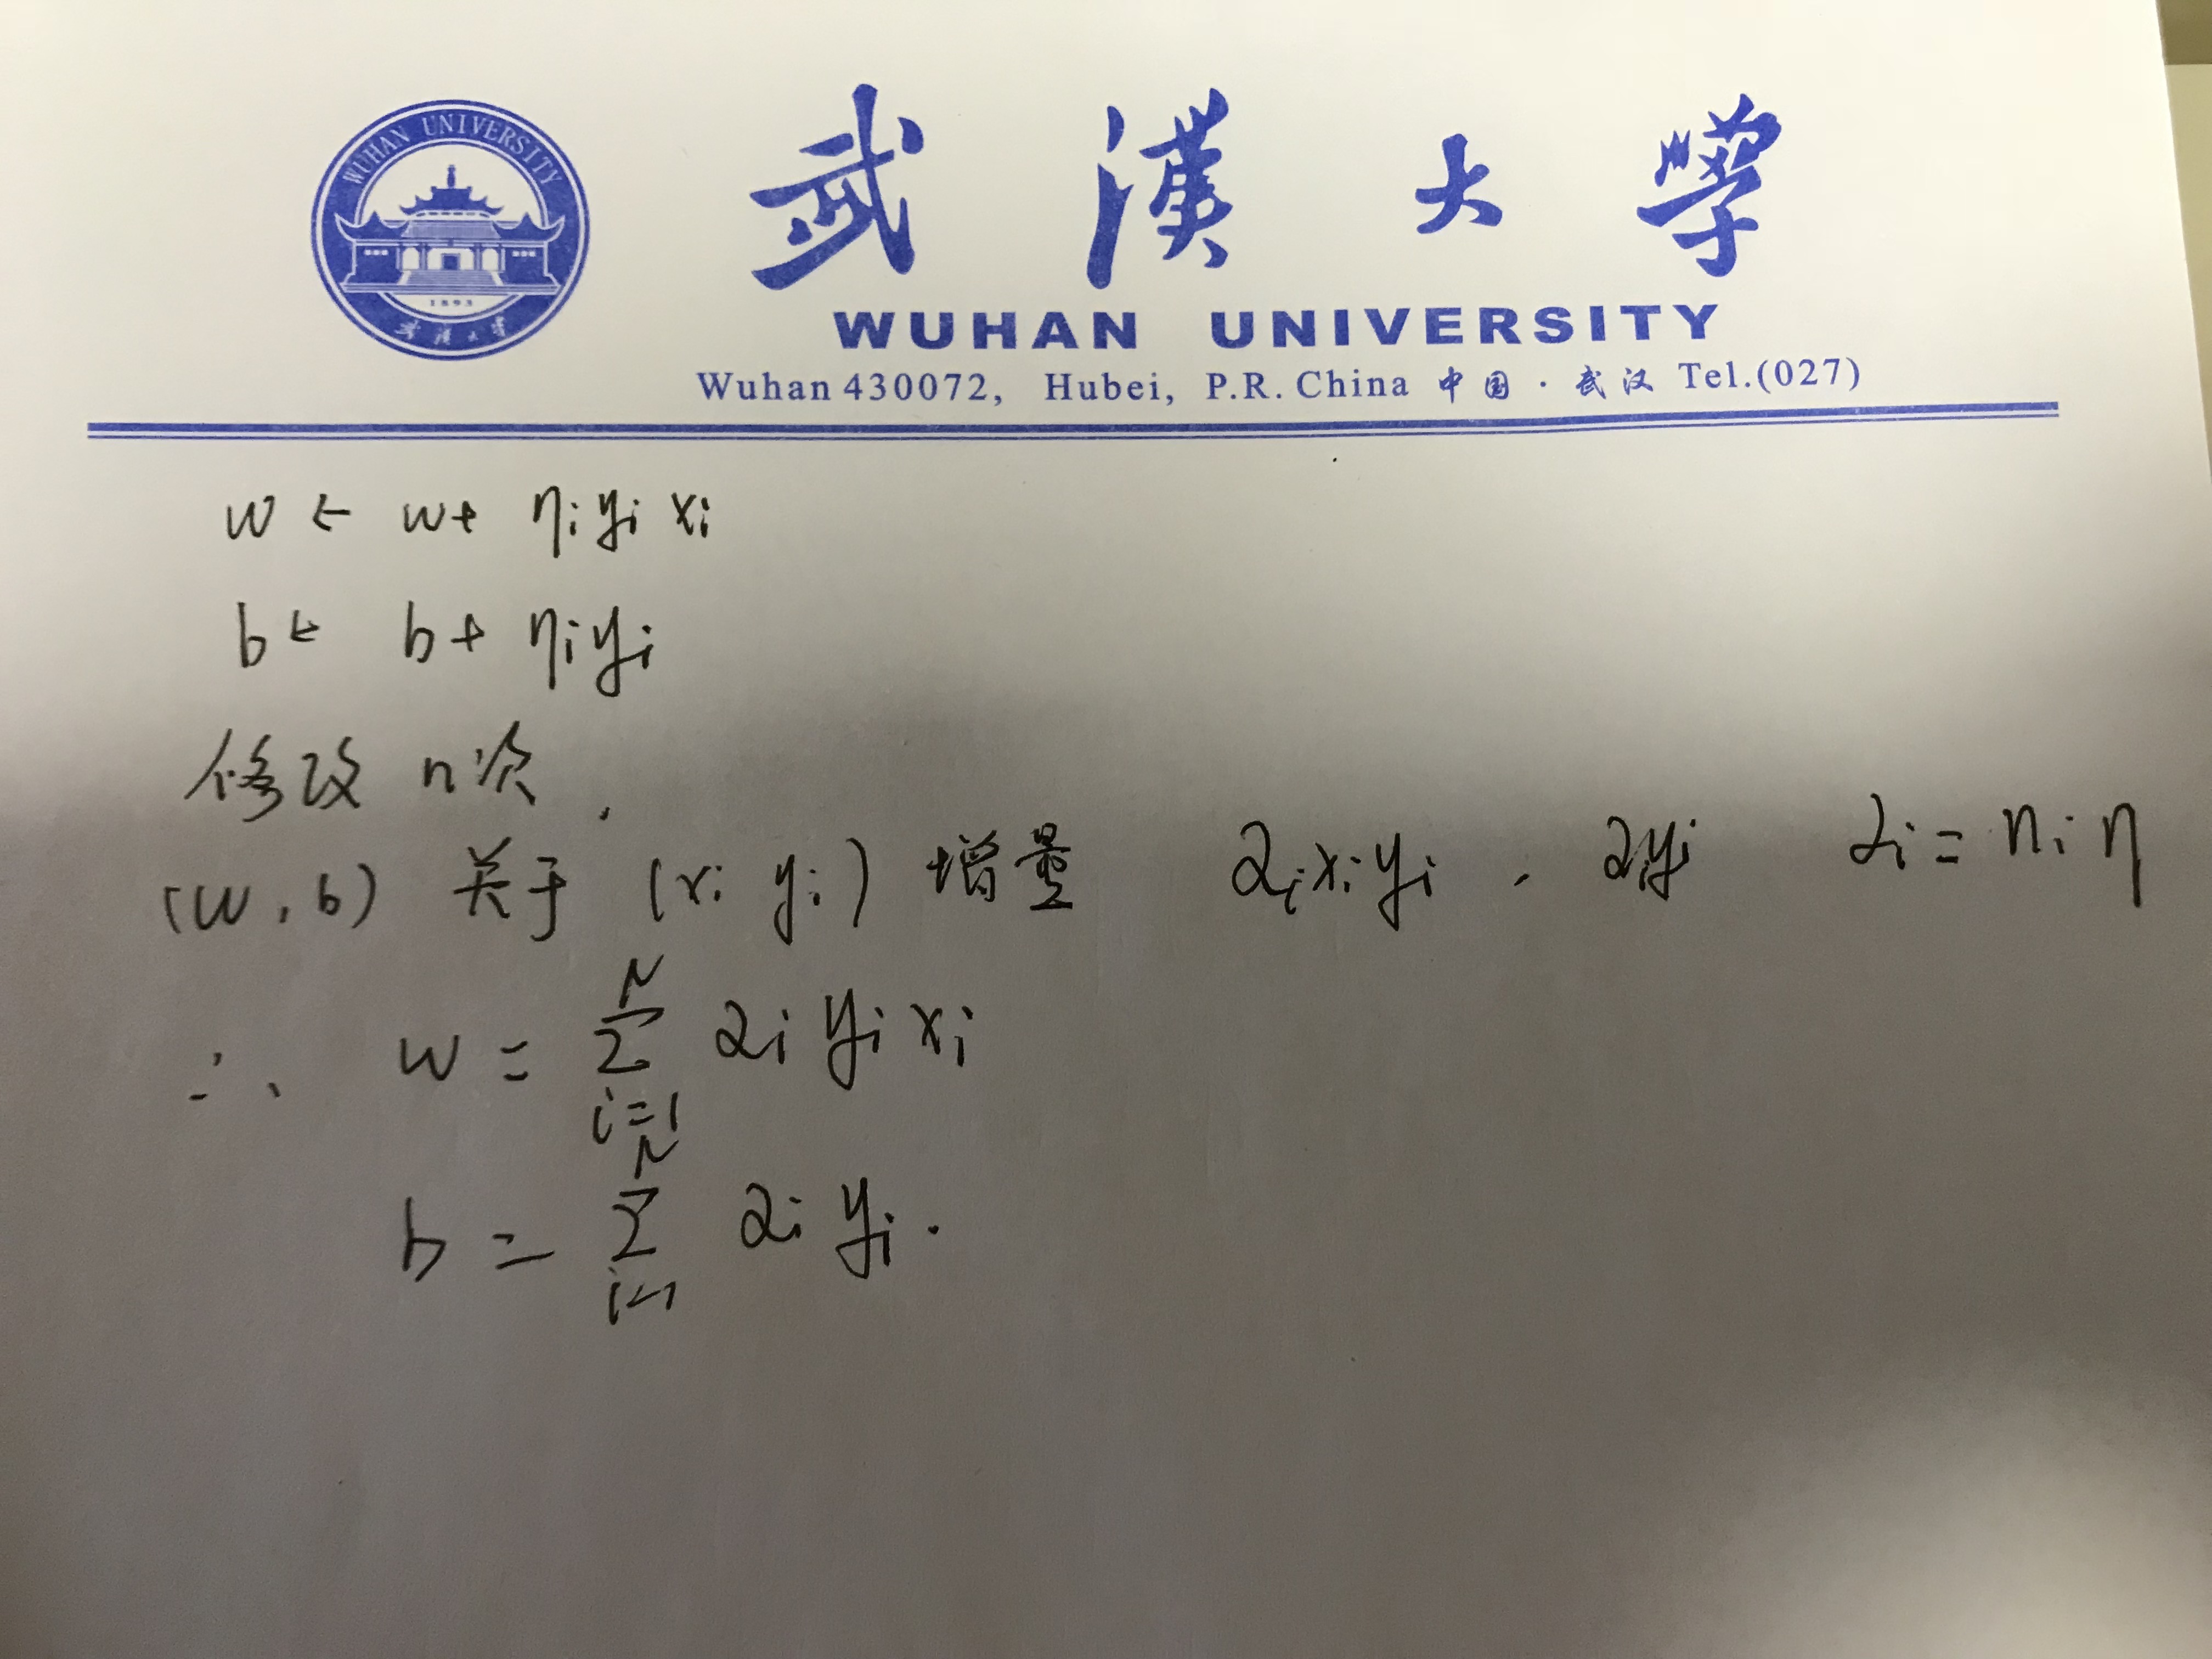 WUHAN UNIVERSITY
1893
武漢大學
武漢大學
WUHAN UNIVERSITY
Wuhan 430072, Hubei, P.R. China 中国·武汉 Tel.(027)
w ← w + ηᵢyᵢxᵢ
b ← b + ηᵢyᵢ
修改 n次.
(w, b) 关于 (xᵢ yᵢ) 增量 αᵢxᵢyᵢ, αᵢyᵢ αᵢ = nᵢη
∴ w = Σᵢ₌₁ᴺ αᵢyᵢxᵢ
b = Σᵢ₌₁ᴺ αᵢyᵢ.